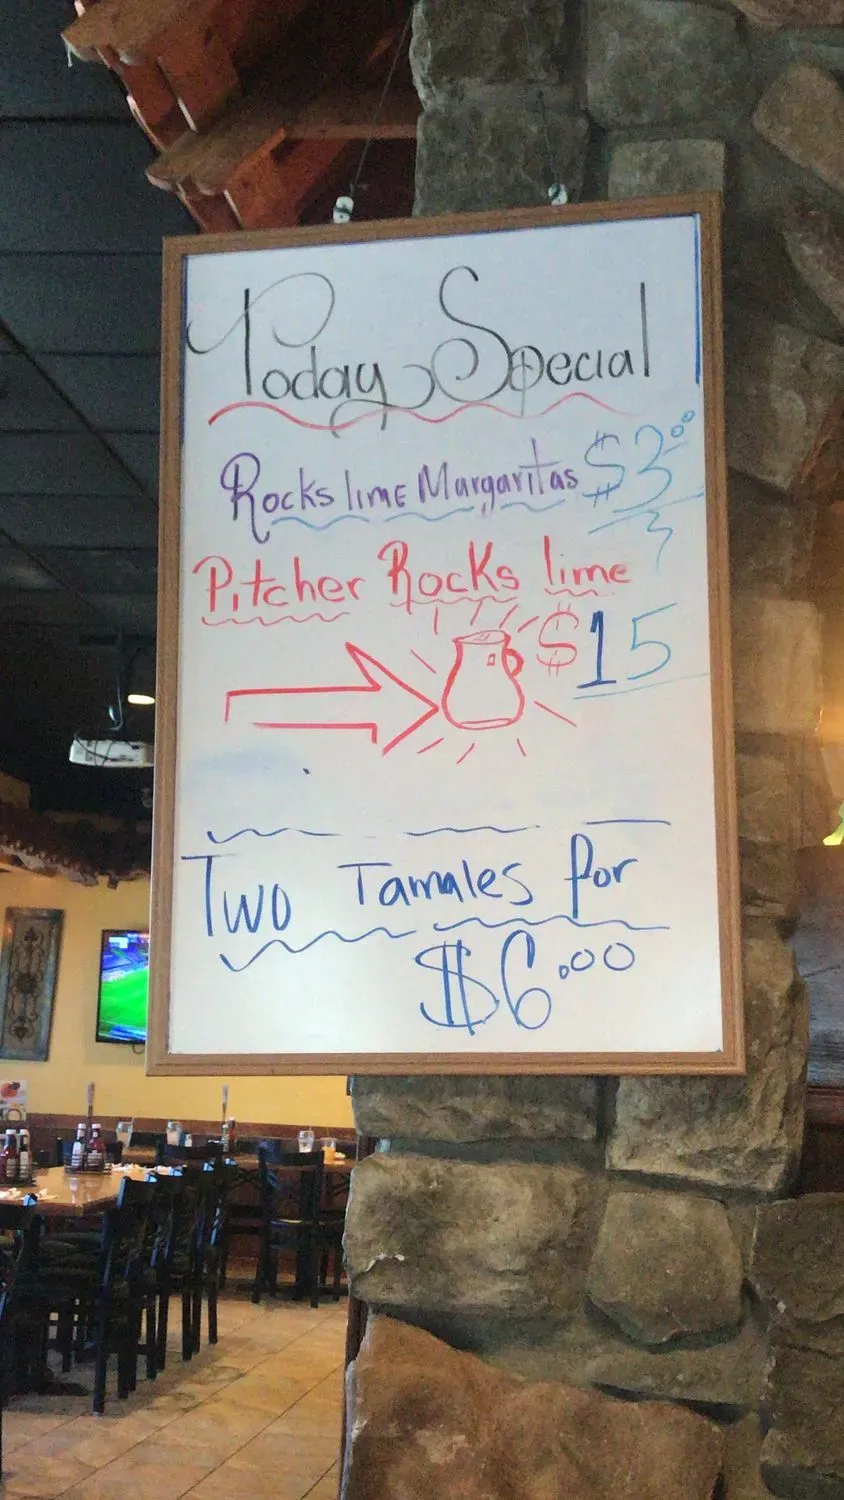 Today Special
Rocks lime Margaritas $3.00
Pitcher Rocks lime
$15
Two Tamales for
$6.00